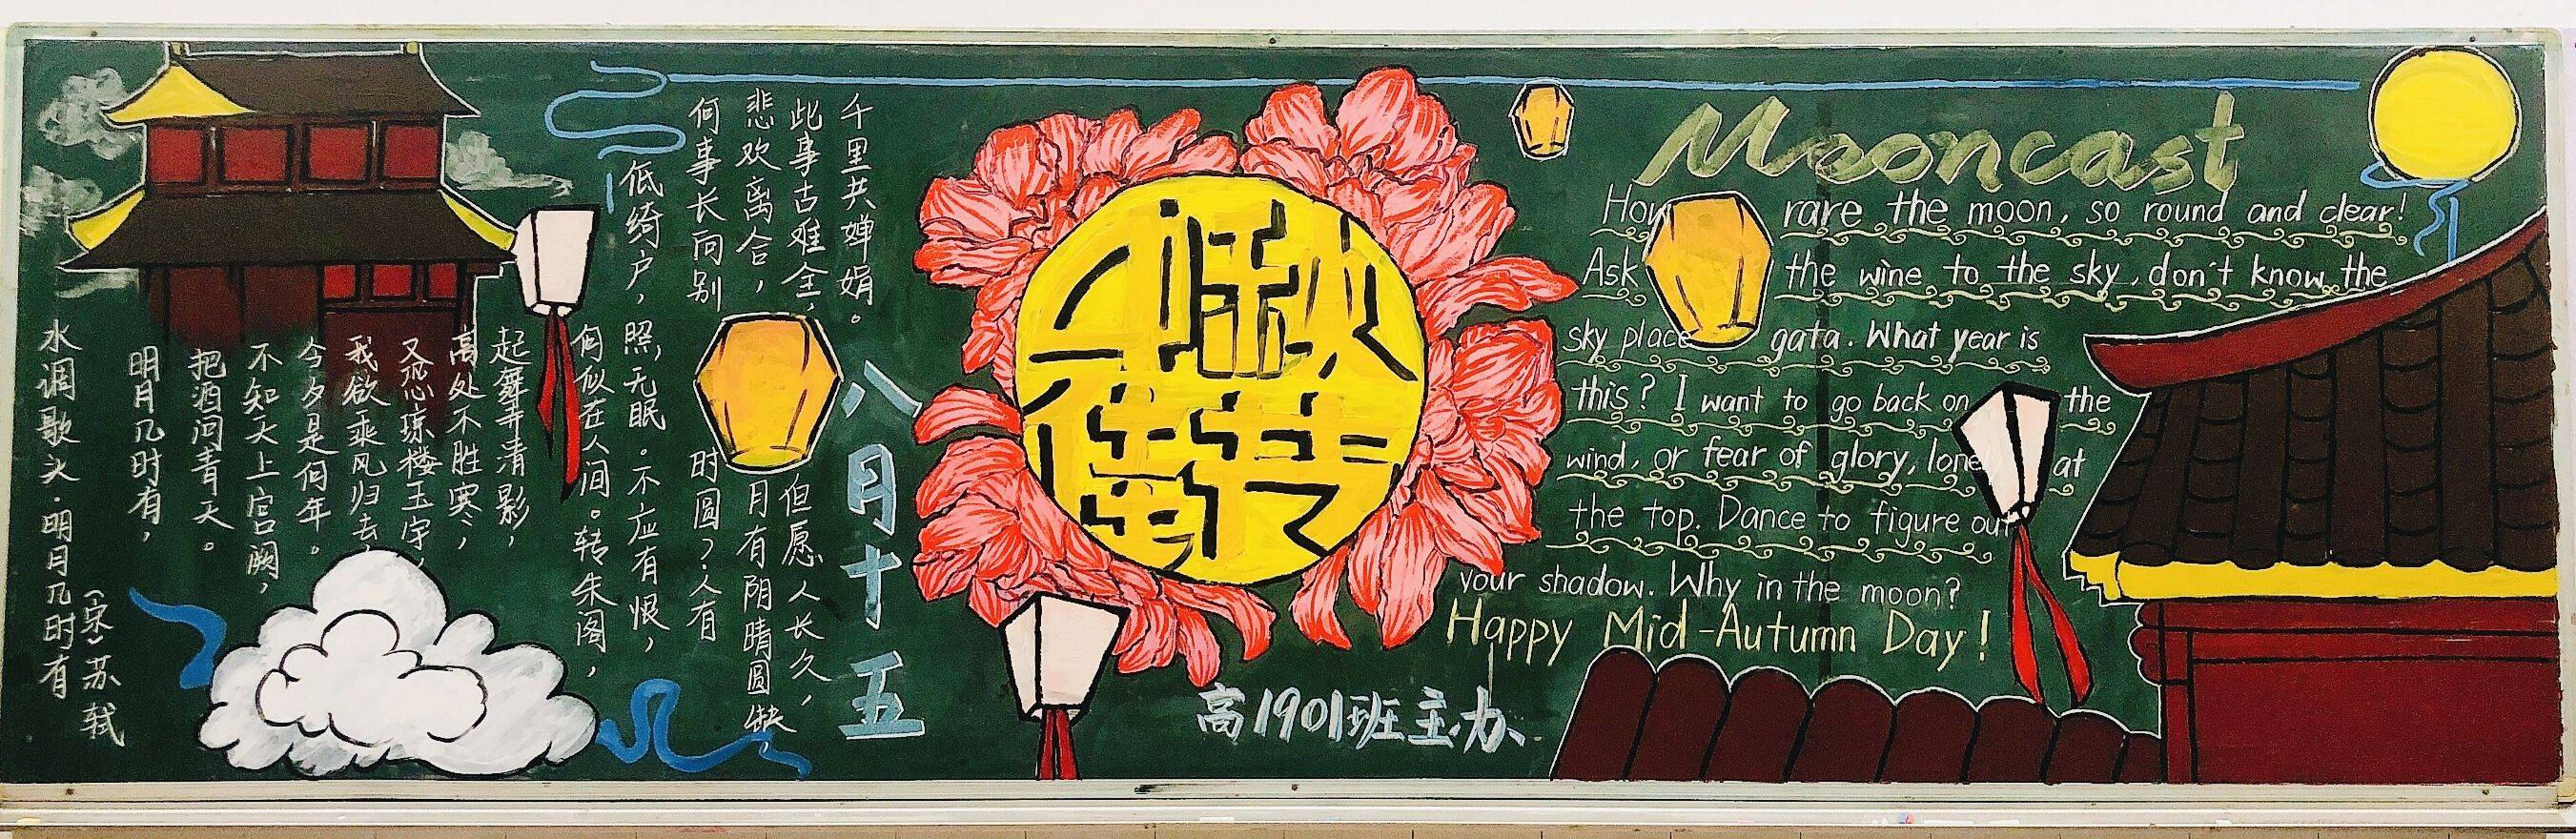 水调歌头·明月几时有
(宋)苏轼
明月几时有,
把酒问青天。
不知天上宫阙,
今夕是何年。
我欲乘风归去,
又恐琼楼玉宇,
高处不胜寒,
起舞弄清影,
何似在人间。转朱阁,
低绮户,照,无眠。不应有恨,
何事长向别时圆?人有
悲欢离合,月有阴晴圆缺,
此事古难全,但愿人长久,
千里共婵娟。
八月十五
Mooncast
How rare the moon, so round and clear!
Ask the wine to the sky, don't know the
sky place gata. What year is
this? I want to go back on the
wind, or fear of glory, lone at
the top. Dance to figure out
your shadow. Why in the moon?
Happy Mid-Autumn Day!
高1901班主办